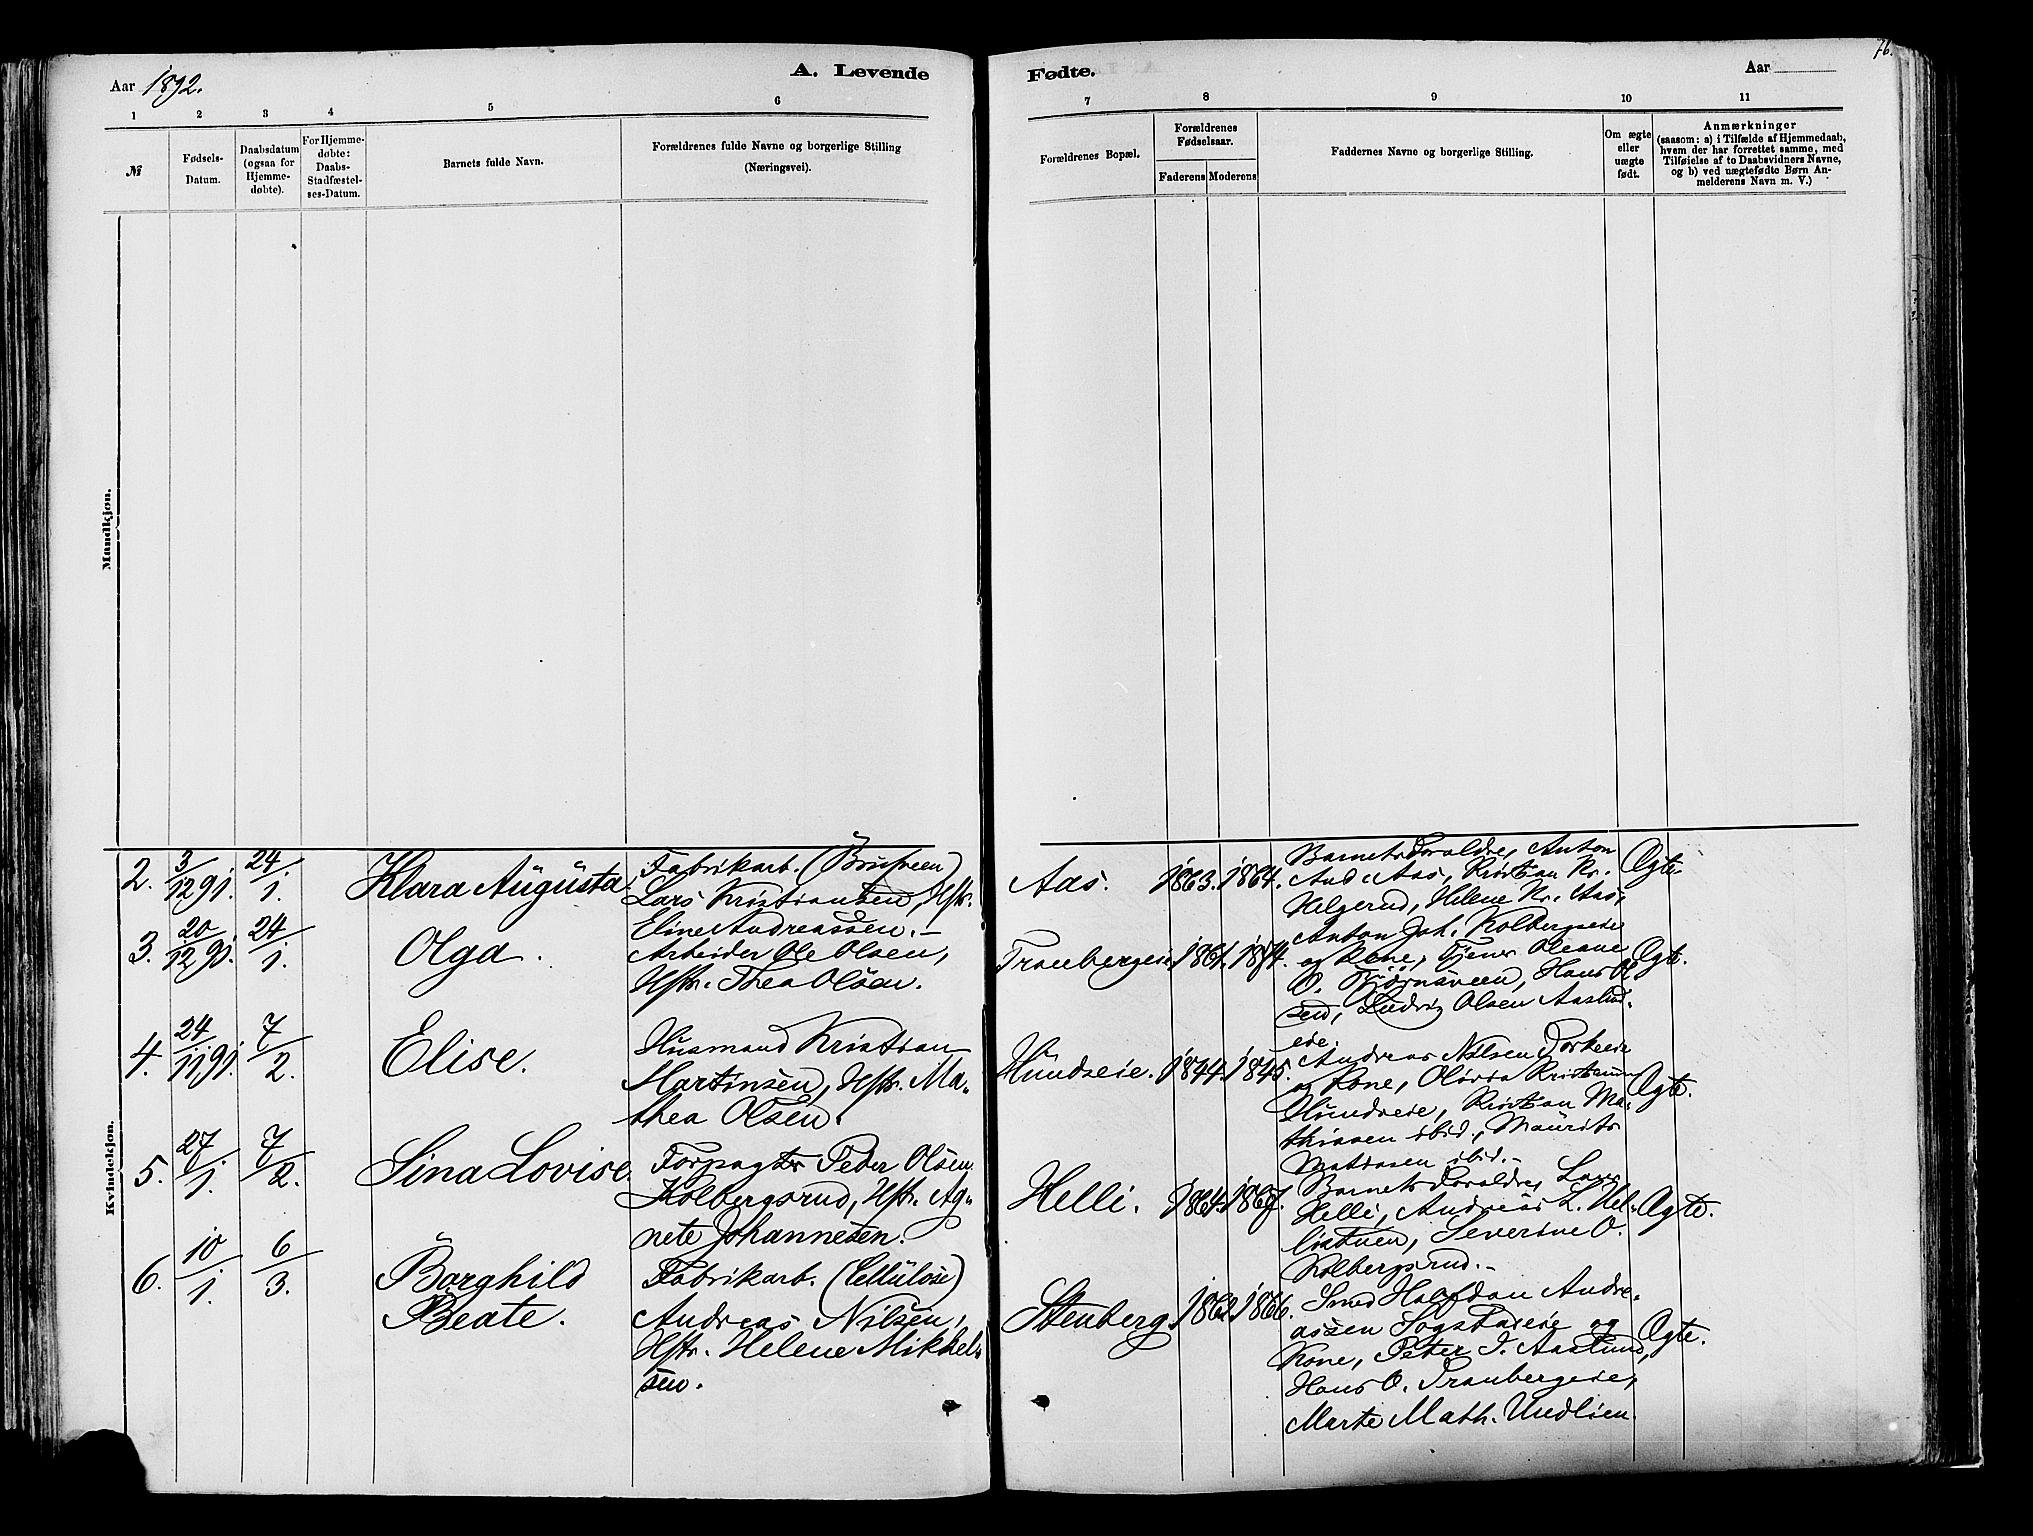 Aar 1892.
A. Levende
Fødte.
Aar
76.
1
2
3
4
5
6
7
8
9
10
11
№
Fødsels-
Datum.
Daabsdatum
(ogsaa for
Hjemme-
døbte).
For Hjemme-
døbte:
Daabs-
Stadfæstel-
ses-Datum.
Barnets fulde Navn.
Forældrenes fulde Navne og borgerlige Stilling
(Næringsvei).
Forældrenes Bopæl.
Forældrenes
Fødselsaar.
Faderens
Moderens
Faddernes Navne og borgerlige Stilling.
Om ægte
eller
uægte
født.
Anmærkninger
(saasom: a) i Tilfælde af Hjemmedaab,
hvem der har forrettet samme, med
Tilføielse af to Daabsvidners Navne,
og b) ved uægtefødte Børn An-
melderens Navn m. V.)
Mandkjøn.
Kvindekjøn.
2.
3/12 91.
24/1.
Klara Augusta.
Fabrikarb. (Brusveen)
Lars Kristiansen, Hstr.
Eline Andreassen.-
Aas.
1863.
1864.
Barnets Foraldre, Anton
And. Aas, Kristian Kr.
Helgerud, Helene Kr. Aas,
Ægte.
3.
20/12 91.
24/1.
Olga.
Arbeider Ole Olsen,
Hstr. Thea Olsen.
Tranbergeie.
1861.
1874.
Anton Joh. Kolbergseie
og Kone, Tjener Oleane
O. Bjørnsveen, Hans Ol
sen, Ludvig Olsen Aaslund-
eie.
Ægte.
4.
24/11 91.
7/2.
Elise.
Husmand Kristian
Martinsen, Hstr. Ma-
thea Olsen.
Hundseie.
1844.
1845.
Andreas Nilsen
og Kone, Olovia Kristiansen
Hundseie, Kristian Ma-
thiasen ibid., Maurits
Matiasen ibid.-
Ægte.
5.
27/1.
7/2.
Sina Lovise.
Forpagter Peder Olsen
Kolbergsrud, Hstr. Ag-
nete Johannesen.
Helli.
1864.
1867.
Barnets Foraldre, Lars
Helli, Andreas L. Hel-
listuen, Severine O.
Kolbergsrud.-
Ægte.
6.
10/1.
6/3.
Borghild
Beate.
Fabrikarb. (Cellulose)
Andreas Nilsen,
Hstr. Helene Mikkel-
sen.
Stenberg.
1862
1866.
Smed Halfdan Andre-
assen Sogstadeie og
Kone, Peter I. Aaslund,
Hans O. Tranbergeie,
Marte Math. Undlien.
Ægte.